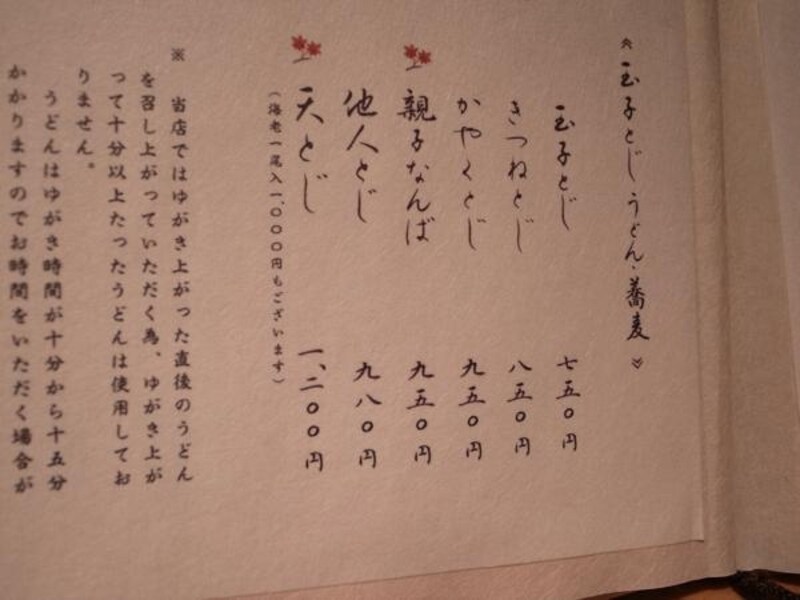 ≪ 玉子とじ うどん・蕎麦 ≫
玉子とじ 七五〇円
きつねとじ 八五〇円
かやくとじ 九五〇円
親子なんば 九五〇円
他人とじ 九八〇円
天とじ 一、二〇〇円
(海老一尾入一、〇〇〇円もございます)
※ 当店ではゆがき上がった直後のうどん
を召し上がっていただく為、ゆがき上が
って十分以上たったうどんは使用してお
りません。
うどんはゆがき時間が十分から十五分
かかりますのでお時間をいただく場合が